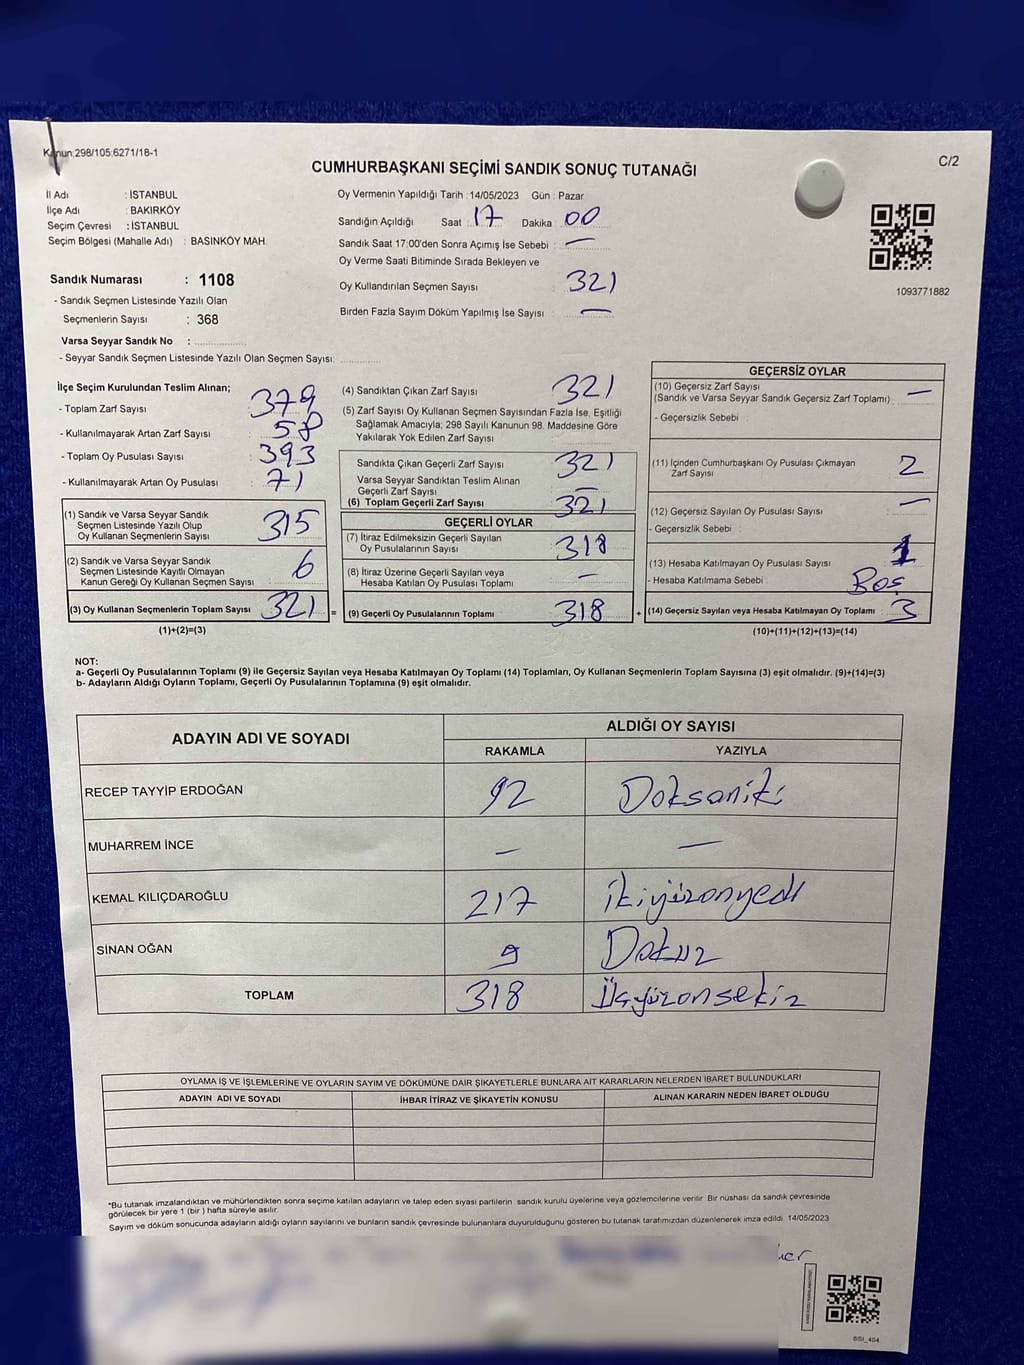 Kanun:298/105,6271/18-1
CUMHURBAŞKANI SEÇİMİ SANDIK SONUÇ TUTANAĞI
C/2
İl Adı : İSTANBUL
İlçe Adı : BAKIRKÖY
Seçim Çevresi : İSTANBUL
Seçim Bölgesi (Mahalle Adı) : BASINKÖY MAH.
Oy Vermenin Yapıldığı Tarih : 14/05/2023 Gün : Pazar
Sandığın Açıldığı Saat : 17 Dakika : 00
Sandık Saat 17:00'den Sonra Açımış İse Sebebi : —
Oy Verme Saati Bitiminde Sırada Bekleyen ve
Oy Kullandırılan Seçmen Sayısı : 321
Birden Fazla Sayım Döküm Yapılmış İse Sayısı : —
1093771882
Sandık Numarası : 1108
- Sandık Seçmen Listesinde Yazılı Olan
Seçmenlerin Sayısı : 368
Varsa Seyyar Sandık No :
- Seyyar Sandık Seçmen Listesinde Yazılı Olan Seçmen Sayısı:
İlçe Seçim Kurulundan Teslim Alınan;
- Toplam Zarf Sayısı : 379
- Kullanılmayarak Artan Zarf Sayısı : 58
- Toplam Oy Pusulası Sayısı : 393
- Kullanılmayarak Artan Oy Pusulası : 71
(1) Sandık ve Varsa Seyyar Sandık
Seçmen Listesinde Yazılı Olup
Oy Kullanan Seçmenlerin Sayısı : 315
(2) Sandık ve Varsa Seyyar Sandık
Seçmen Listesinde Kayıtlı Olmayan
Kanun Gereği Oy Kullanan Seçmen Sayısı : 6
(3) Oy Kullanan Seçmenlerin Toplam Sayısı : 321 =
(1)+(2)=(3)
(4) Sandıktan Çıkan Zarf Sayısı : 321
(5) Zarf Sayısı Oy Kullanan Seçmen Sayısından Fazla İse, Eşitliği
Sağlamak Amacıyla; 298 Sayılı Kanunun 98. Maddesine Göre
Yakılarak Yok Edilen Zarf Sayısı
Sandıkta Çıkan Geçerli Zarf Sayısı : 321
Varsa Seyyar Sandıktan Teslim Alınan
Geçerli Zarf Sayısı : —
(6) Toplam Geçerli Zarf Sayısı : 321
GEÇERLİ OYLAR
(7) İtiraz Edilmeksizin Geçerli Sayılan
Oy Pusulalarının Sayısı : 318
(8) İtiraz Üzerine Geçerli Sayılan veya
Hesaba Katılan Oy Pusulası Toplamı : —
(9) Geçerli Oy Pusulalarının Toplamı : 318 +
GEÇERSİZ OYLAR
(10) Geçersiz Zarf Sayısı
(Sandık ve Varsa Seyyar Sandık Geçersiz Zarf Toplamı) : —
- Geçersizlik Sebebi :
(11) İçinden Cumhurbaşkanı Oy Pusulası Çıkmayan
Zarf Sayısı : 2
(12) Geçersiz Sayılan Oy Pusulası Sayısı : —
- Geçersizlik Sebebi :
(13) Hesaba Katılmayan Oy Pusulası Sayısı : 1
- Hesaba Katılmama Sebebi : Boş
(14) Geçersiz Sayılan veya Hesaba Katılmayan Oy Toplamı : 3
(10)+(11)+(12)+(13)=(14)
NOT:
a- Geçerli Oy Pusulalarının Toplamı (9) ile Geçersiz Sayılan veya Hesaba Katılmayan Oy Toplamı (14) Toplamları, Oy Kullanan Seçmenlerin Toplam Sayısına (3) eşit olmalıdır. (9)+(14)=(3)
b- Adayların Aldığı Oyların Toplamı, Geçerli Oy Pusulalarının Toplamına (9) eşit olmalıdır.
ADAYIN ADI VE SOYADI
ALDIĞI OY SAYISI
RAKAMLA YAZIYLA
RECEP TAYYİP ERDOĞAN 92 Doksaniki
MUHARREM İNCE — —
KEMAL KILIÇDAROĞLU 217 ikiyüzonyedi
SİNAN OĞAN 9 Dokuz
TOPLAM 318 Üçyüzonsekiz
OYLAMA İŞ VE İŞLEMLERİNE VE OYLARIN SAYIM VE DÖKÜMÜNE DAİR ŞİKAYETLERLE BUNLARA AİT KARARLARIN NELERDEN İBARET BULUNDUKLARI
ADAYIN ADI VE SOYADI İHBAR İTİRAZ VE ŞİKAYETİN KONUSU ALINAN KARARIN NEDEN İBARET OLDUĞU
*Bu tutanak imzalandıktan ve mühürlendikten sonra seçime katılan adayların ve talep eden siyasi partilerin sandık kurulu üyelerine veya gözlemcilerine verilir. Bir nüshası da sandık çevresinde
görülecek bir yere 1 (bir ) hafta süreyle asılır.
Sayım ve döküm sonucunda adayların aldığı oyların sayılarını ve bunların sandık çevresinde bulunanlara duyurulduğunu gösteren bu tutanak tarafımızdan düzenlenerek imza edildi. 14/05/2023
SSI_404